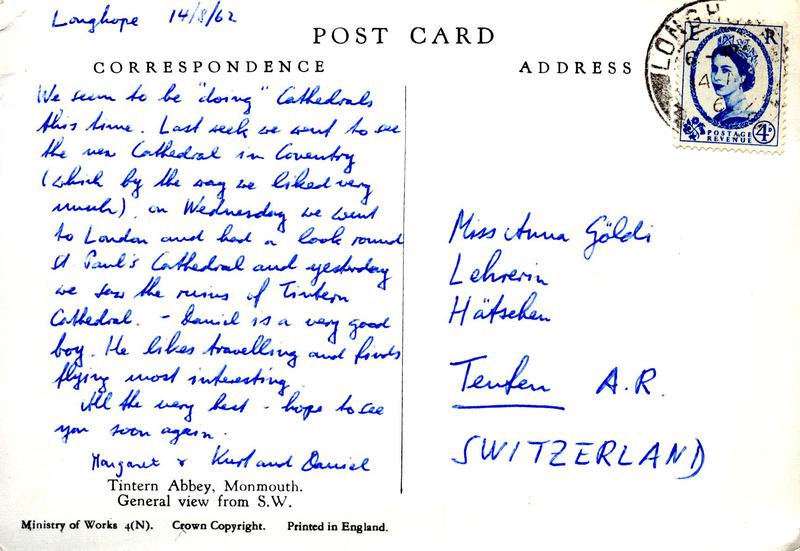 Longhope 14/8/62
POST CARD
CORRESPONDENCE
ADDRESS
We seem to be "doing" Cathedrals
this time. Last week we went to see
the new Cathedral in Coventry
(which by the way we liked very
much), on Wednesday we went
to London and had a look round
St. Paul's Cathedral and yesterday
we saw the ruins of Tintern
Cathedral. - Daniel is a very good
boy. He likes travelling and finds
flying most interesting.
All the very best - hope to see
you soon again.
Margaret & Kurt and Daniel
Tintern Abbey, Monmouth.
General view from S.W.
Ministry of Works 4(N). Crown Copyright. Printed in England.
LONGH
E R
POSTAGE
REVENUE
4D
Miss Anna Göldi
Lehrerin
Hätschen
Teufen A.R.
SWITZERLAND